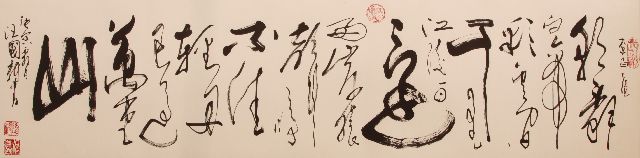 朝辭
白帝
彩雲間
千里
江陵一日
還
兩岸猿
聲啼
不住
輕舟
已過
萬重
山